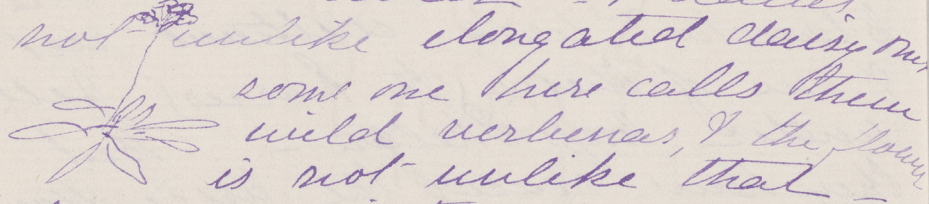 not unlike elongated daisy ones
some one here calls them
wild verbenas, & the flower
is not unlike that -